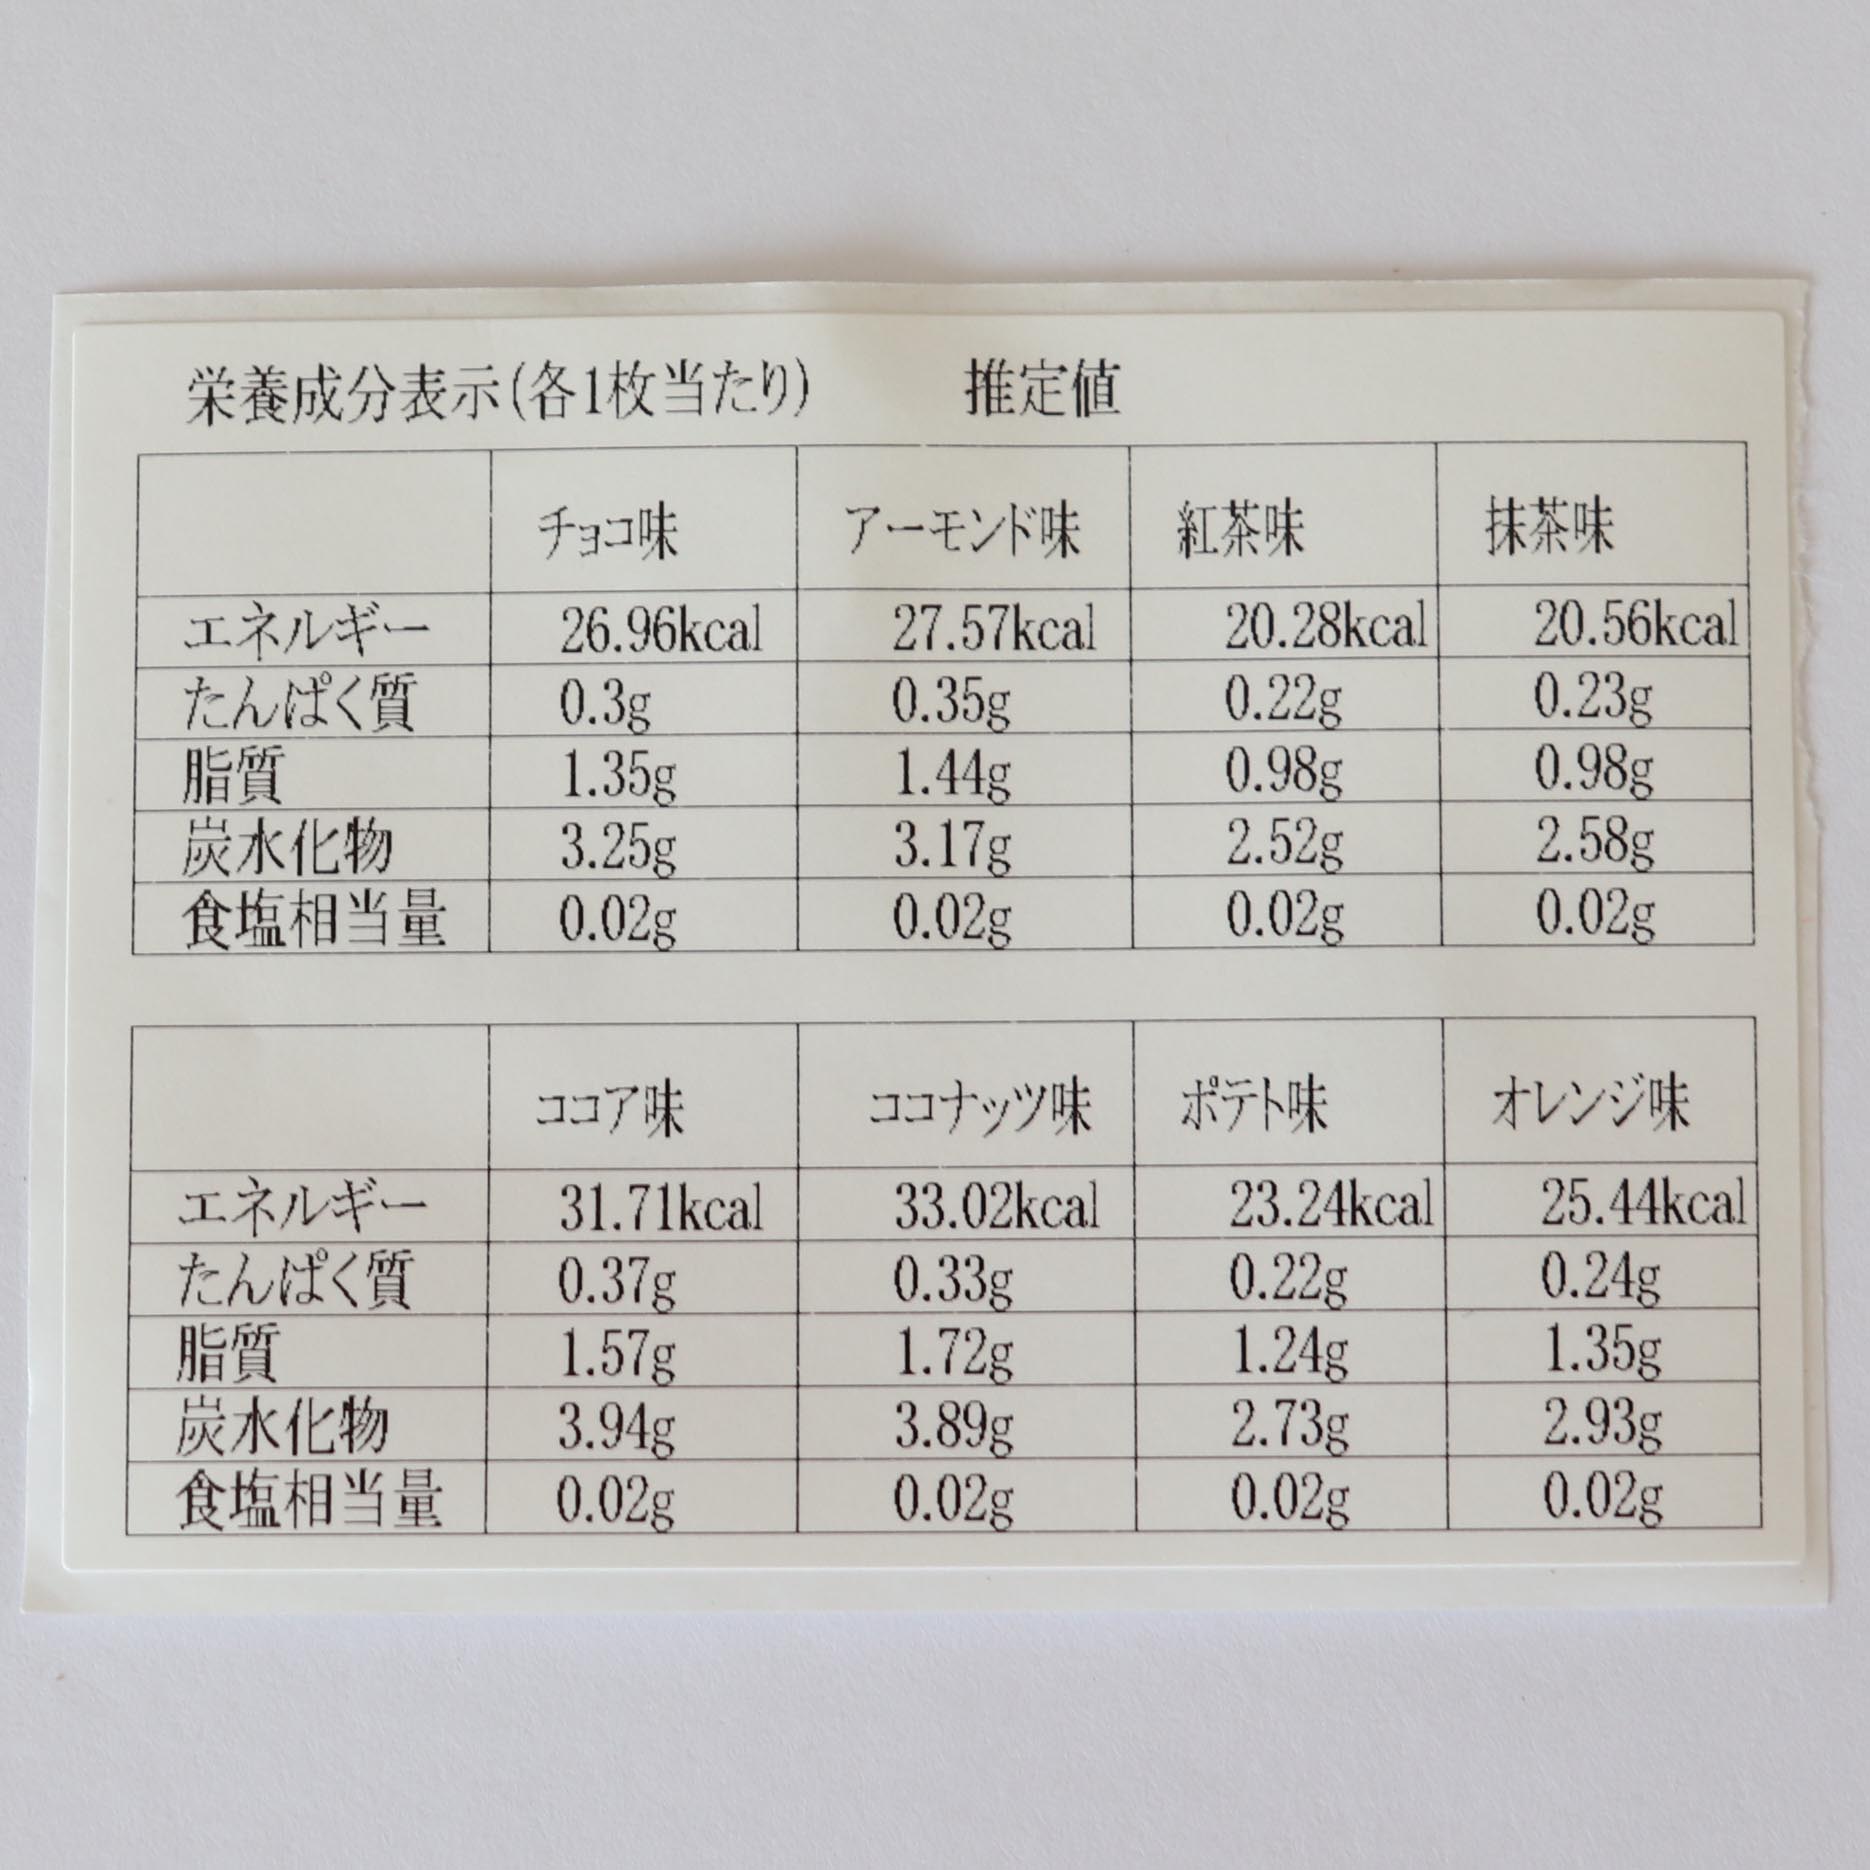 栄養成分表示(各1枚当たり) 推定値
チョコ味 アーモンド味 紅茶味 抹茶味
エネルギー 26.96kcal 27.57kcal 20.28kcal 20.56kcal
たんぱく質 0.3g 0.35g 0.22g 0.23g
脂質 1.35g 1.44g 0.98g 0.98g
炭水化物 3.25g 3.17g 2.52g 2.58g
食塩相当量 0.02g 0.02g 0.02g 0.02g
ココア味 ココナッツ味 ポテト味 オレンジ味
エネルギー 31.71kcal 33.02kcal 23.24kcal 25.44kcal
たんぱく質 0.37g 0.33g 0.22g 0.24g
脂質 1.57g 1.72g 1.24g 1.35g
炭水化物 3.94g 3.89g 2.73g 2.93g
食塩相当量 0.02g 0.02g 0.02g 0.02g